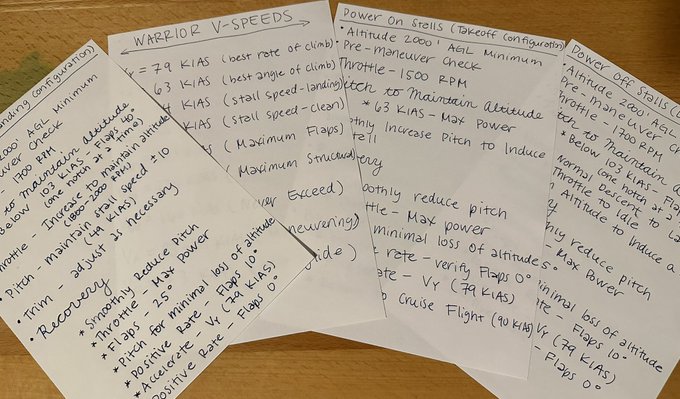 anding configuration)
2000' AGL Minimum
uver check
1700 RPM
to maintain altitude
below 103 KIAS - Flaps 40°
(one notch at a time)
hrottle - Increase to maintain altitude
(1800-2000 RPM)
• Pitch - maintain stall speed ±10
(49 KIAS)
• Trim - adjust as necessary
• Recovery
* Smoothly Reduce Pitch
* Throttle - Max Power
* Flaps - 25°
* Pitch for minimal loss of altitude
* Positive Rate - Flaps 10°
* Accelerate - Vy (79 KIAS)
Positive Rate - Flaps 0°
WARRIOR V-SPEEDS
= 79 KIAS (best rate of climb)
63 KIAS (best angle of climb)
KIAS (stall speed-landing)
KIAS (stall speed-clean)
KIAS (Maximum Flaps)
(Maximum Structural)
ver Exceed)
neuvering)
lide)
Power On Stalls (Takeoff Configuration)
• Altitude 2000' AGL Minimum
Pre-maneuver Check
Throttle - 1500 RPM
itch to Maintain altitude
* 63 KIAS - Max Power
othly Increase Pitch to Induce
tall
very
moothly reduce pitch
ttle - Max power
minimal loss of altitude
rate - verify Flaps 0°
ate - Vy (79 KIAS)
to cruise Flight (90 KIAS)
Power Off Stalls (L
• Altitude 2000' AGL
Pre-Maneuver Check
hrottle - 1700 RPM
tch to Maintain al
* Below 103 KIAS - Flap
(one notch at a
Normal Descent to La
Throttle to Idle to
Altitude to Induce a
hly reduce pitch
- Max Power
5°
minimal loss of altitude
ate - Flaps 10°
Vy (79 KIAS)
- Flaps 0°